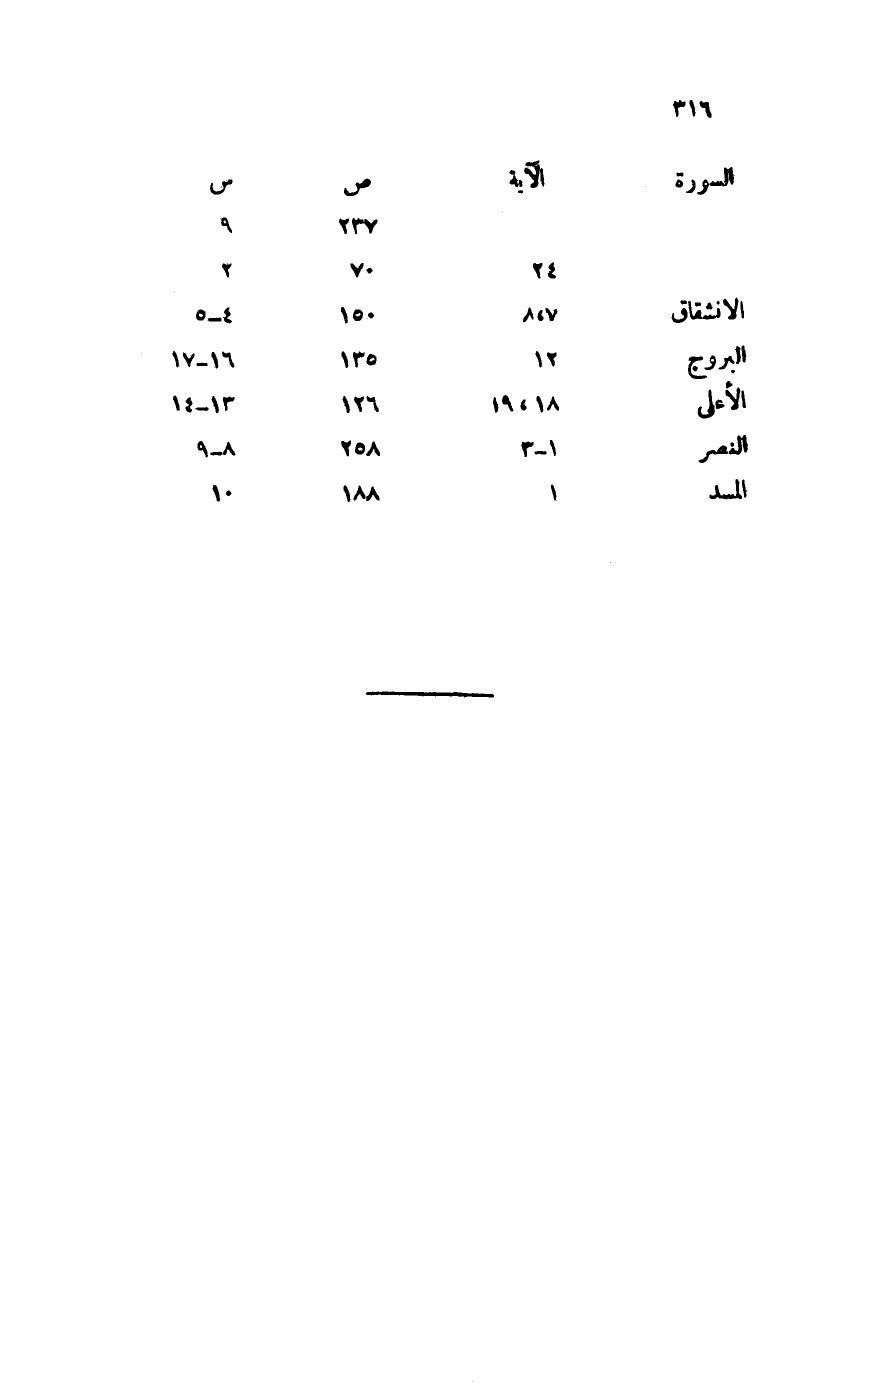 ٣١٦
السورة الآية ص س
٢٣٧ ٩
٢٤ ٧٠ ٢
الانشقاق ٨،٧ ١٥٠ ٤–٥
البروج ١٢ ١٣٥ ١٦–١٧
الأعلى ١٨، ١٩ ١٢٦ ١٣–١٤
النصر ١–٣ ٢٥٨ ٨–٩
المسد ١ ١٨٨ ١٠